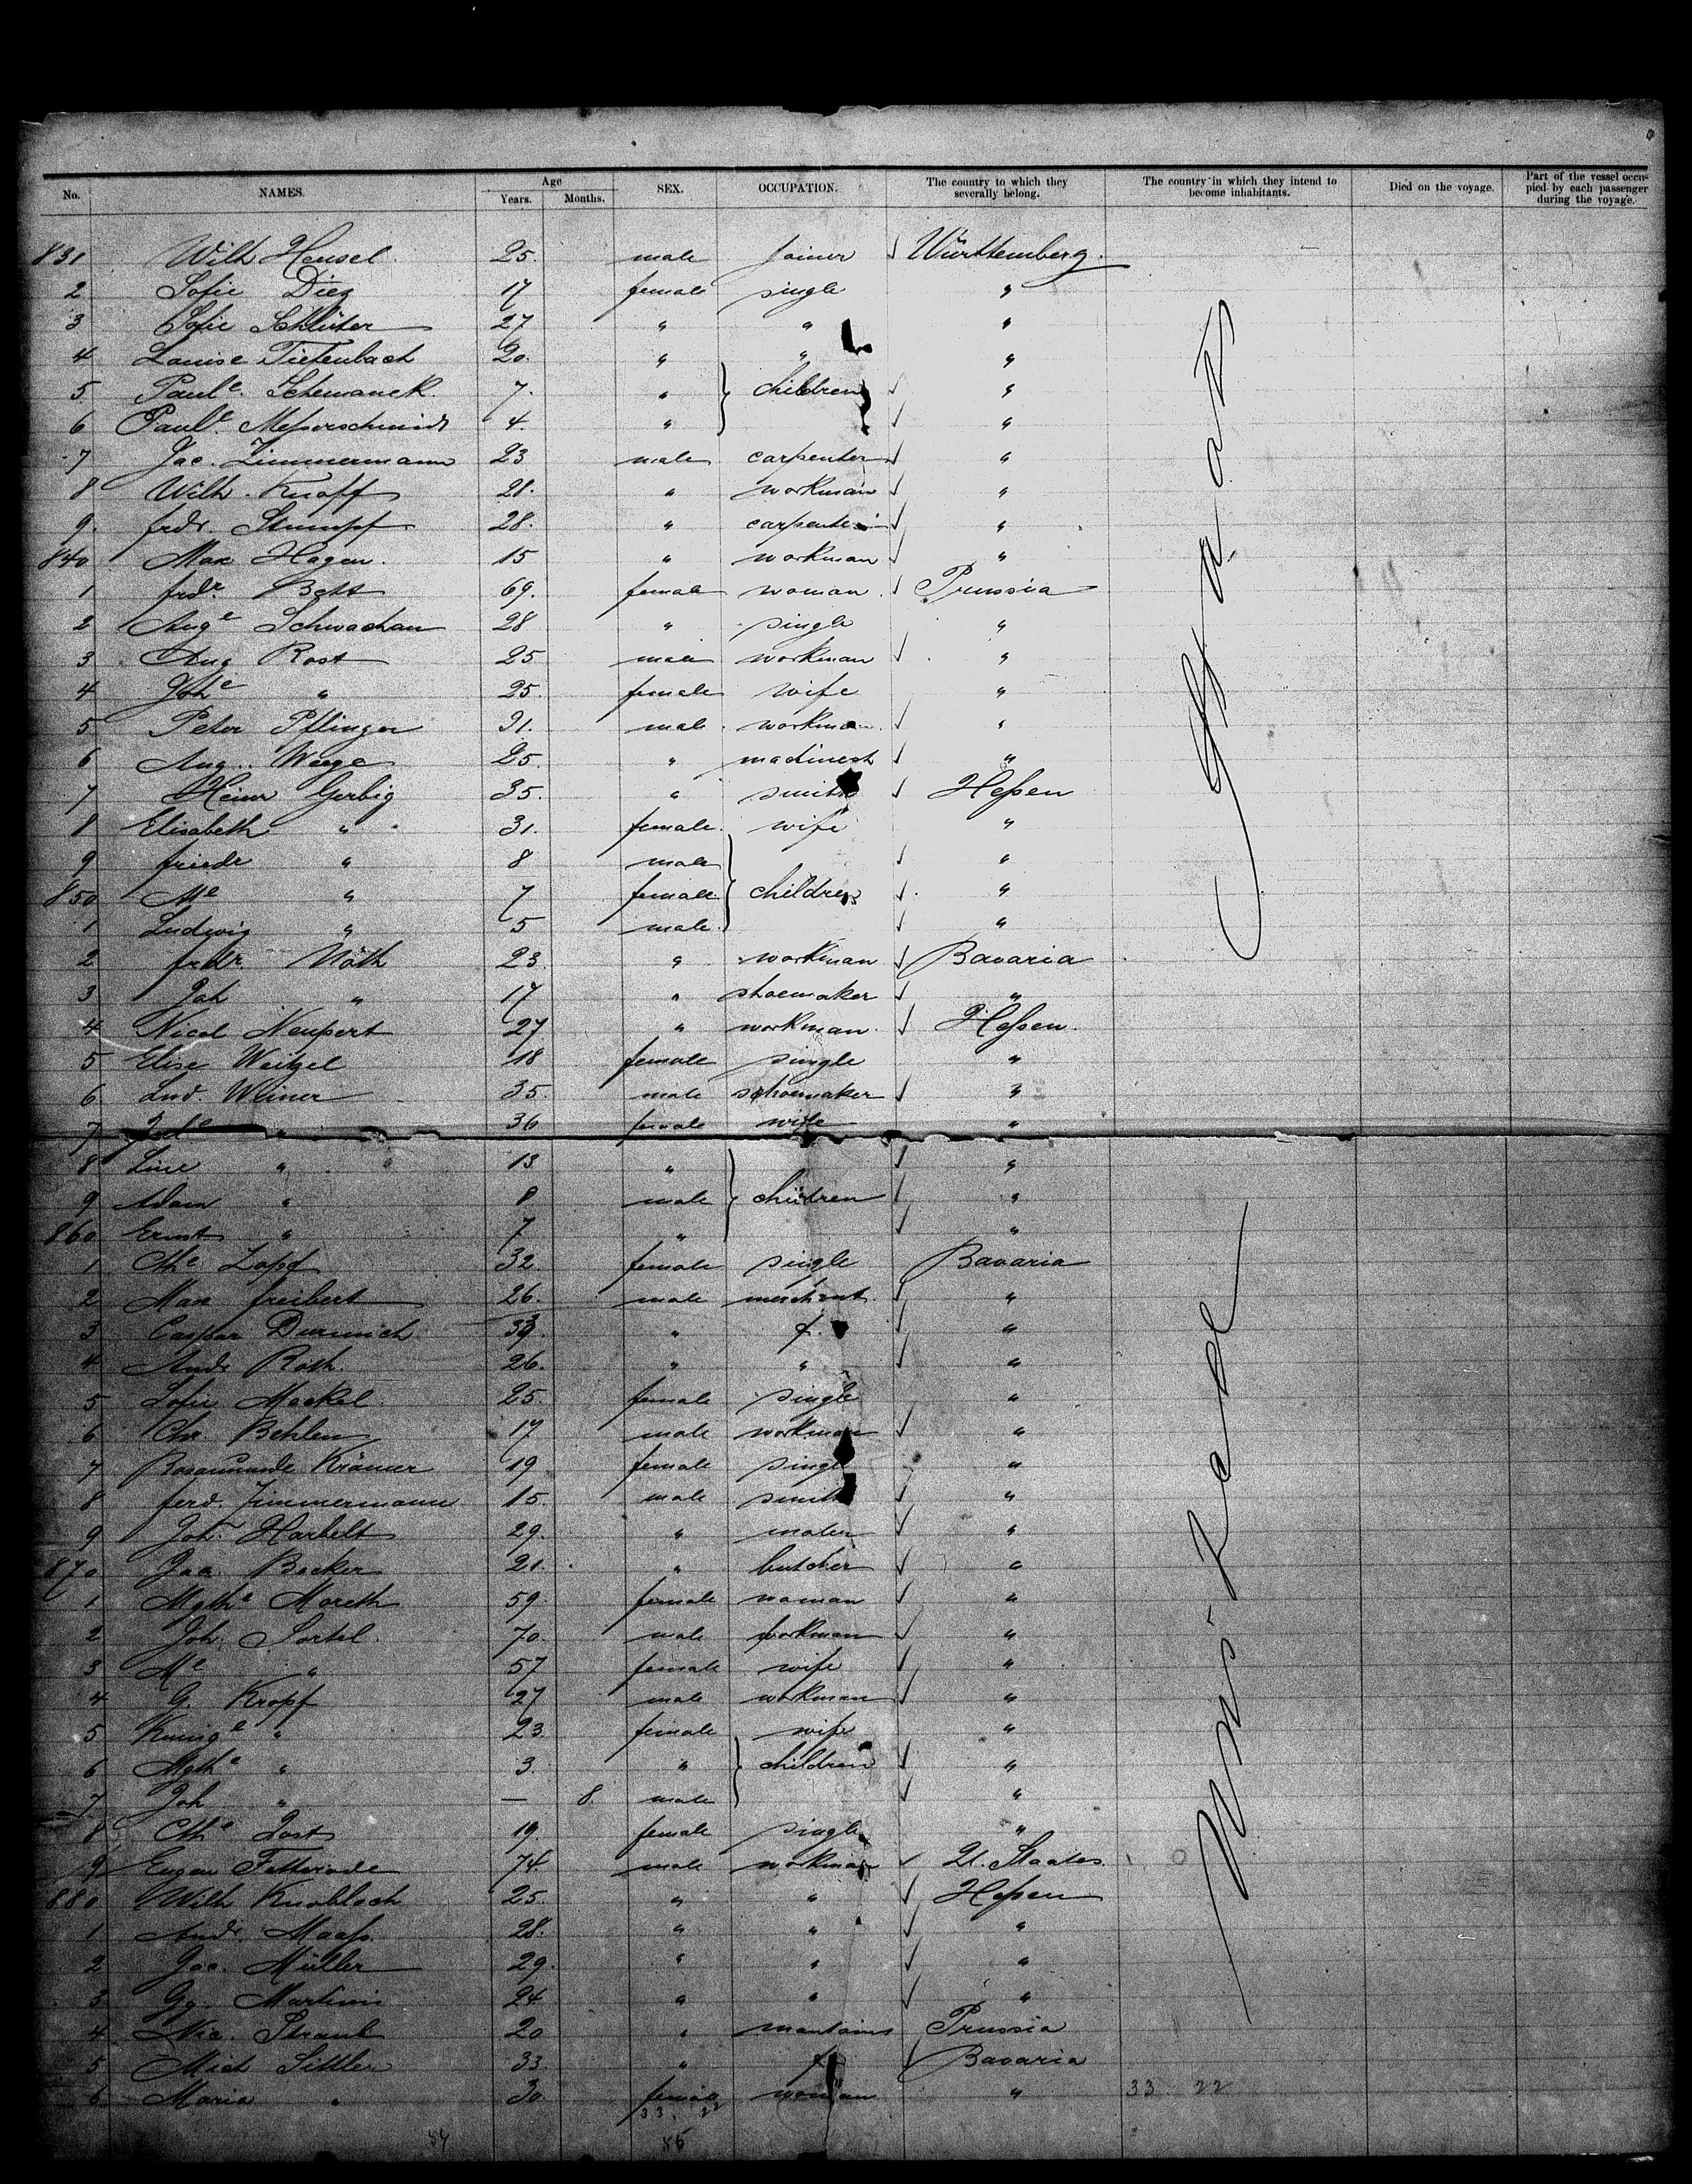 No. NAMES. Age Years. Months. SEX. OCCUPATION. The country to which they severally belong. The country in which they intend to become inhabitants. Died on the voyage. Part of the vessel occupied by each passenger during the voyage.
831 Wilh Hensel 25. male joiner √ Württemberg.
2 Sofie Diez 17 female single "
3 Sofie Schlüter 27 " " "
4 Louise Tiefenbach 20. " " "
5. Paul e. Schemanek. 7. " children √ "
6 Paul e. Meßerschmidt 4. " √ "
7 Jac. Zimmermann 23 male carpenter √ "
8 Wilh. Knapp 21. " workman √ "
9. frdr. Stumpf 28. " carpenter √ "
840 Max Hagen. 15 " workman √ "
1 frdr. Bott 69. female woman √ Prussia
2 Aug e Schwachan 28 " single "
3 Aug Rost 25 male workman √ "
4 Joh e " 25. female wife "
5 Peter Pflinger 31. male workman √ "
6 Aug. Weege 25. " machinest √ "
7 Heinr Gerbig 35. " smith √ Heßen
8 Elisabeth " 31. female. wife "
9 friedr " 8 male √ "
850 M e " 7 female children √ "
1 Ludwig " 5 male. √ "
2 frdr. Nöth 23. " workman √ Bavaria
3 Joh " 17 " shoemaker √ "
4 Nicol Neupert 27 " workman √ Heßen.
5 Elise Weitzel 18 female single "
6 Lud. Weiner 35. male schoemaker √ "
7 " 36 female wife "
8 Line " 13 " √ "
9 Adam " 8 male children √ "
860 Ernst " 7 " √ "
1 Ch e Zapf 32 female single Bavaria
2 Max freibert 26. male merchant. √ "
3 Caspar 33. " √ "
4 Andr Roth. 26. " " √ "
5 Sofie Meckel. 25. female single "
6 Chr. Behlen 17 male workman √ "
7 Rosamunde Krämer 19 female single "
8 ferd. Zimmermann 15. male smith √ "
9 Joh. Harbelt 29. " √ "
870 Jac. Becker 21. " butcher √ "
1 Mgth e Moreth 59. female woman √ "
2 Joh. Sertel. 70. male workman √ "
3 M e " 57 female wife √ "
4 G. Kropf 27 male workman √ "
5 Kunig e " 23. female wife "
6 Mgth e " 3. " children √ "
7 Joh " — 8. male √ "
8 Cth e Jost 19. female single "
9 Eugen 74 male workman √ U. Staates.
880 Wilh Knobloch 25. " " √ Heßen
1 Andr. Maaß. 28. " " √ "
2 Jac. Müller 29. " " √ "
3 Gg. Martini 24 " " √ "
4 Nic. Straub 20 " Prussia
5 Mich Sittler 33. " √ Bavaria
6 Maria " 30 female woman " 33. 22
33. 22
54 86